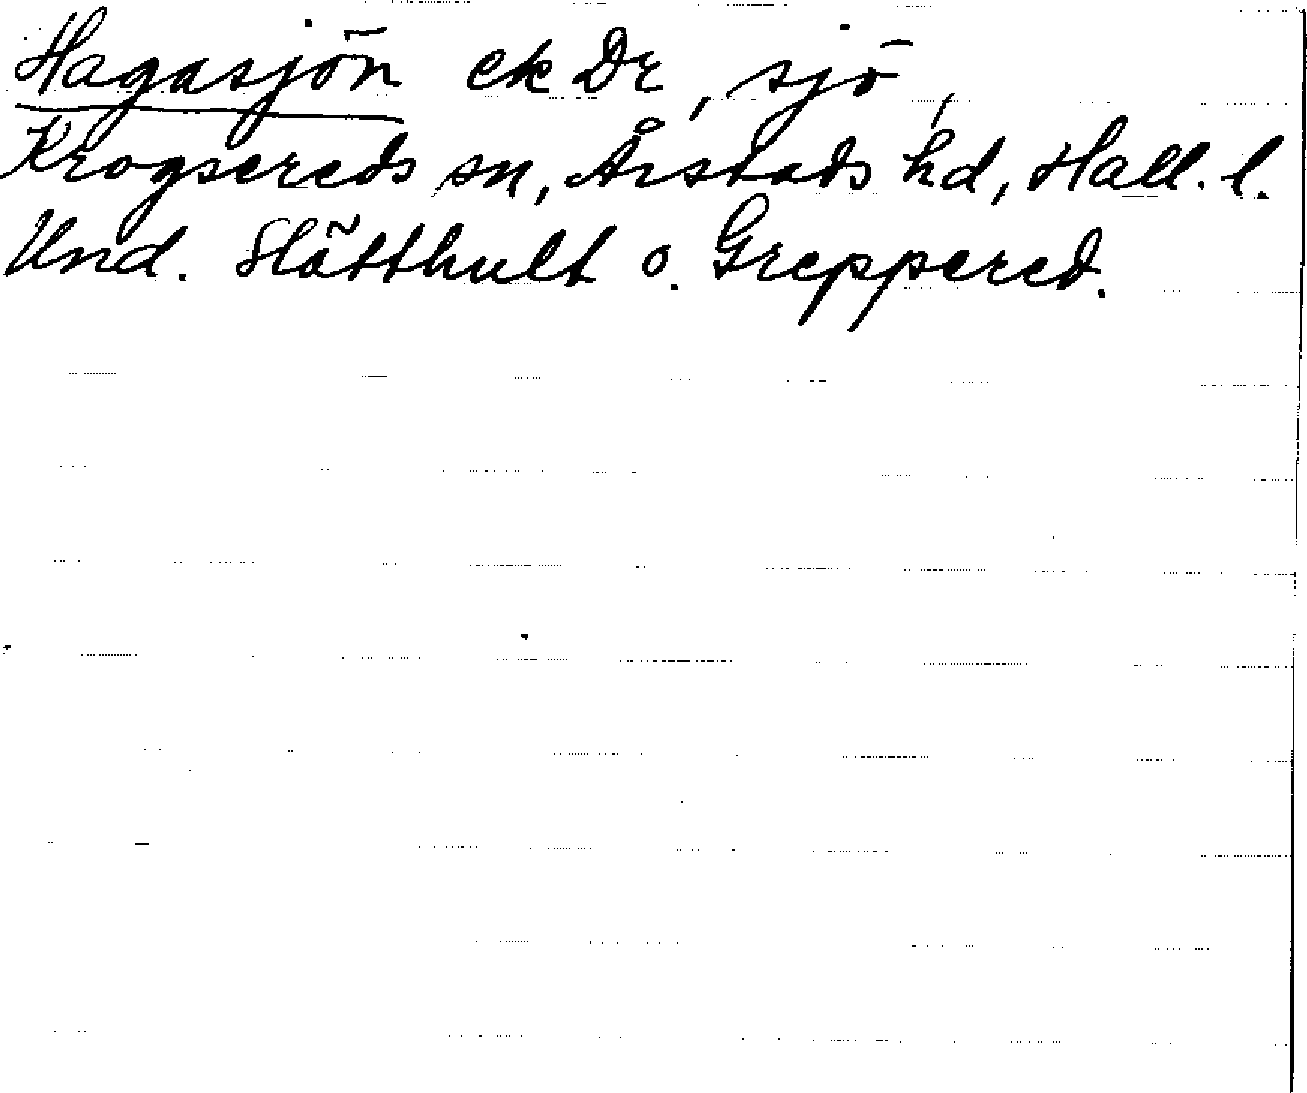 Hagasjön ek Dr, sjö,
Krogsereds sn, Årstads hd, Hall. l.
Und. Slätthult o. Greppered.